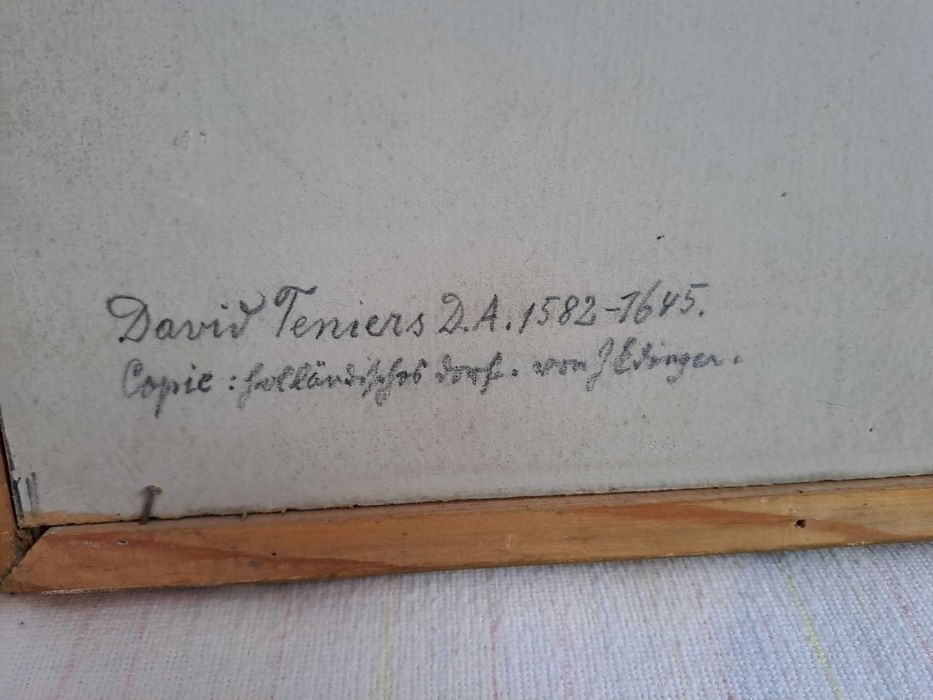 David Teniers D.A. 1582-1645.
Copie: holländisches dorf. von J Edinger.